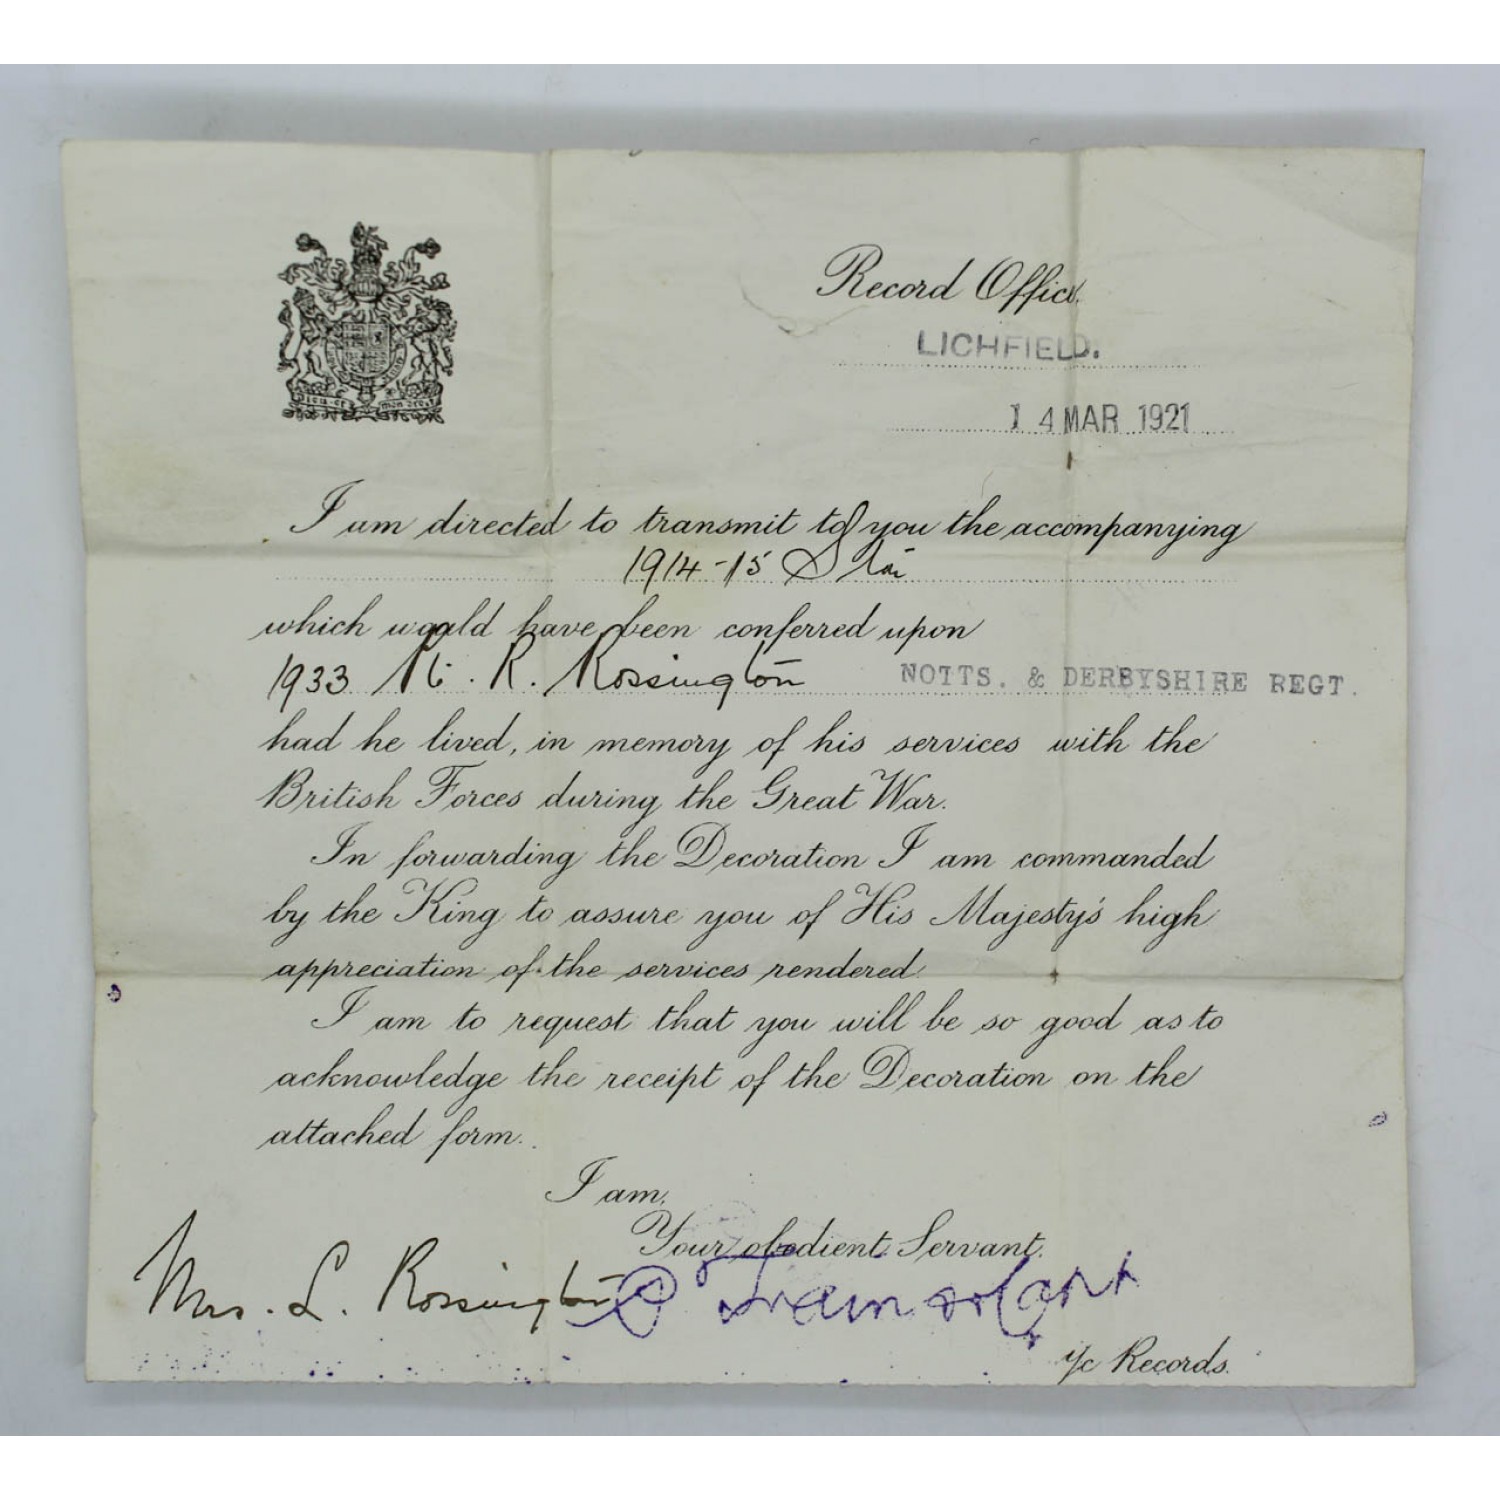 Dieu et mon droit
Record Office.
LICHFIELD.
14 MAR 1921
I am directed to transmit to you the accompanying
1914-15 Star
which would have been conferred upon
1933 R. Rossington NOTTS. & DERBYSHIRE REGT.
had he lived, in memory of his services with the
British Forces during the Great War.
In forwarding the Decoration I am commanded
by the King to assure you of His Majesty's high
appreciation of the services rendered.
I am to request that you will be so good as to
acknowledge the receipt of the Decoration on the
attached form.
I am,
Your obedient Servant.
Mrs. L. Rossington
i/c Records.